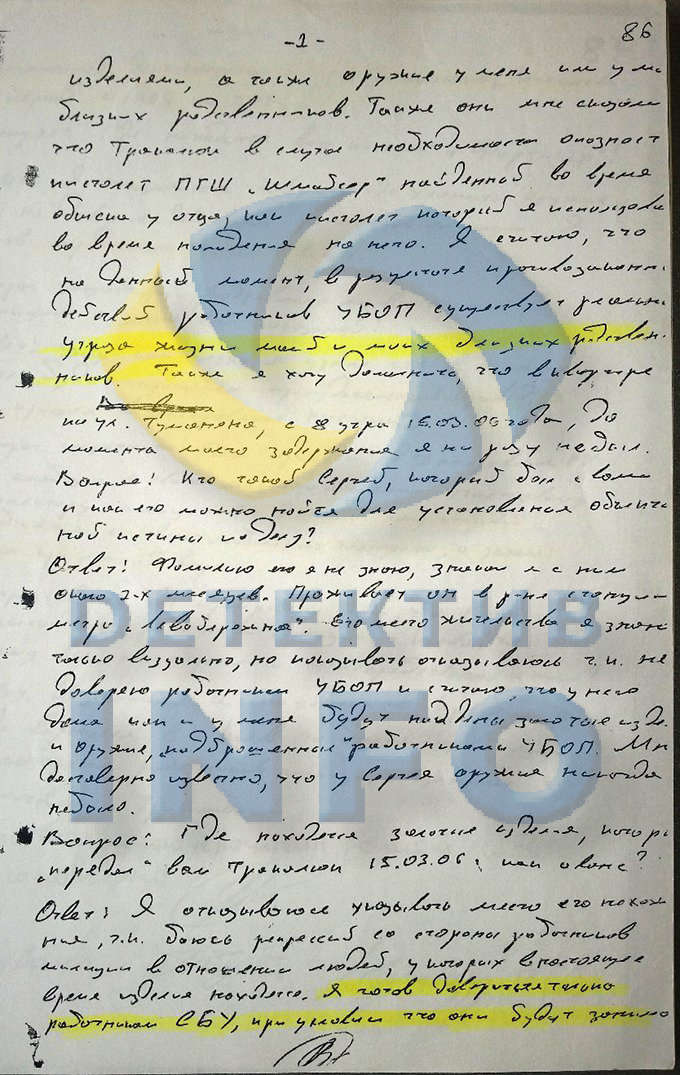 -1-
86
изделиями, а также оружие у меня или у мо
близких родственников. Также они мне сказали
что Трокалюк в случае необходимости опознает
пистолет ПГШ „Шмайсер" найденный во время
обыска у отца, как пистолет который я использова
во время нападения на него. Я считаю, что
на данный момент, в результате провокационн
действий работников УБОП существует реальна
угроза жизни моей и моих близких родствен-
ников. Также я хочу дополнить, что в квартире
по ул. Туманяна, с 8 утра 15.03.06 года, до
момента моего задержания я ни разу не был.
Вопрос: Кто такой Сергей, который был с вами
и как его можно найти для установления объектив
ной истины по делу?
Ответ: Фамилию его я не знаю, знаком я с ним
около 2-х месяцев. Проживает он в р-не станции
метро „Левобережная". Его место жительства я знаю
только визуально, но показывать отказываюсь т.к. не
доверяю работникам УБОП и считаю, что у него
дома как и у меня будут найдены золотые изде
и оружие, „подброшенные" работниками УБОП. Мн
достоверно известно, что у Сергея оружия никогда
небыло.
Вопрос: Где находятся золотые изделия, котор
„передал" вам 15.03.06г как аванс?
Ответ: Я отказываюсь указывать место его нахож
ния, т.к. боюсь репрессий со стороны работников
милиции в отношении людей, у которых в настоящее
время изделия находятся. Я готов довериться только
работникам СБУ, при условии что они будут занима
DЕТЕКТИВ
INFO